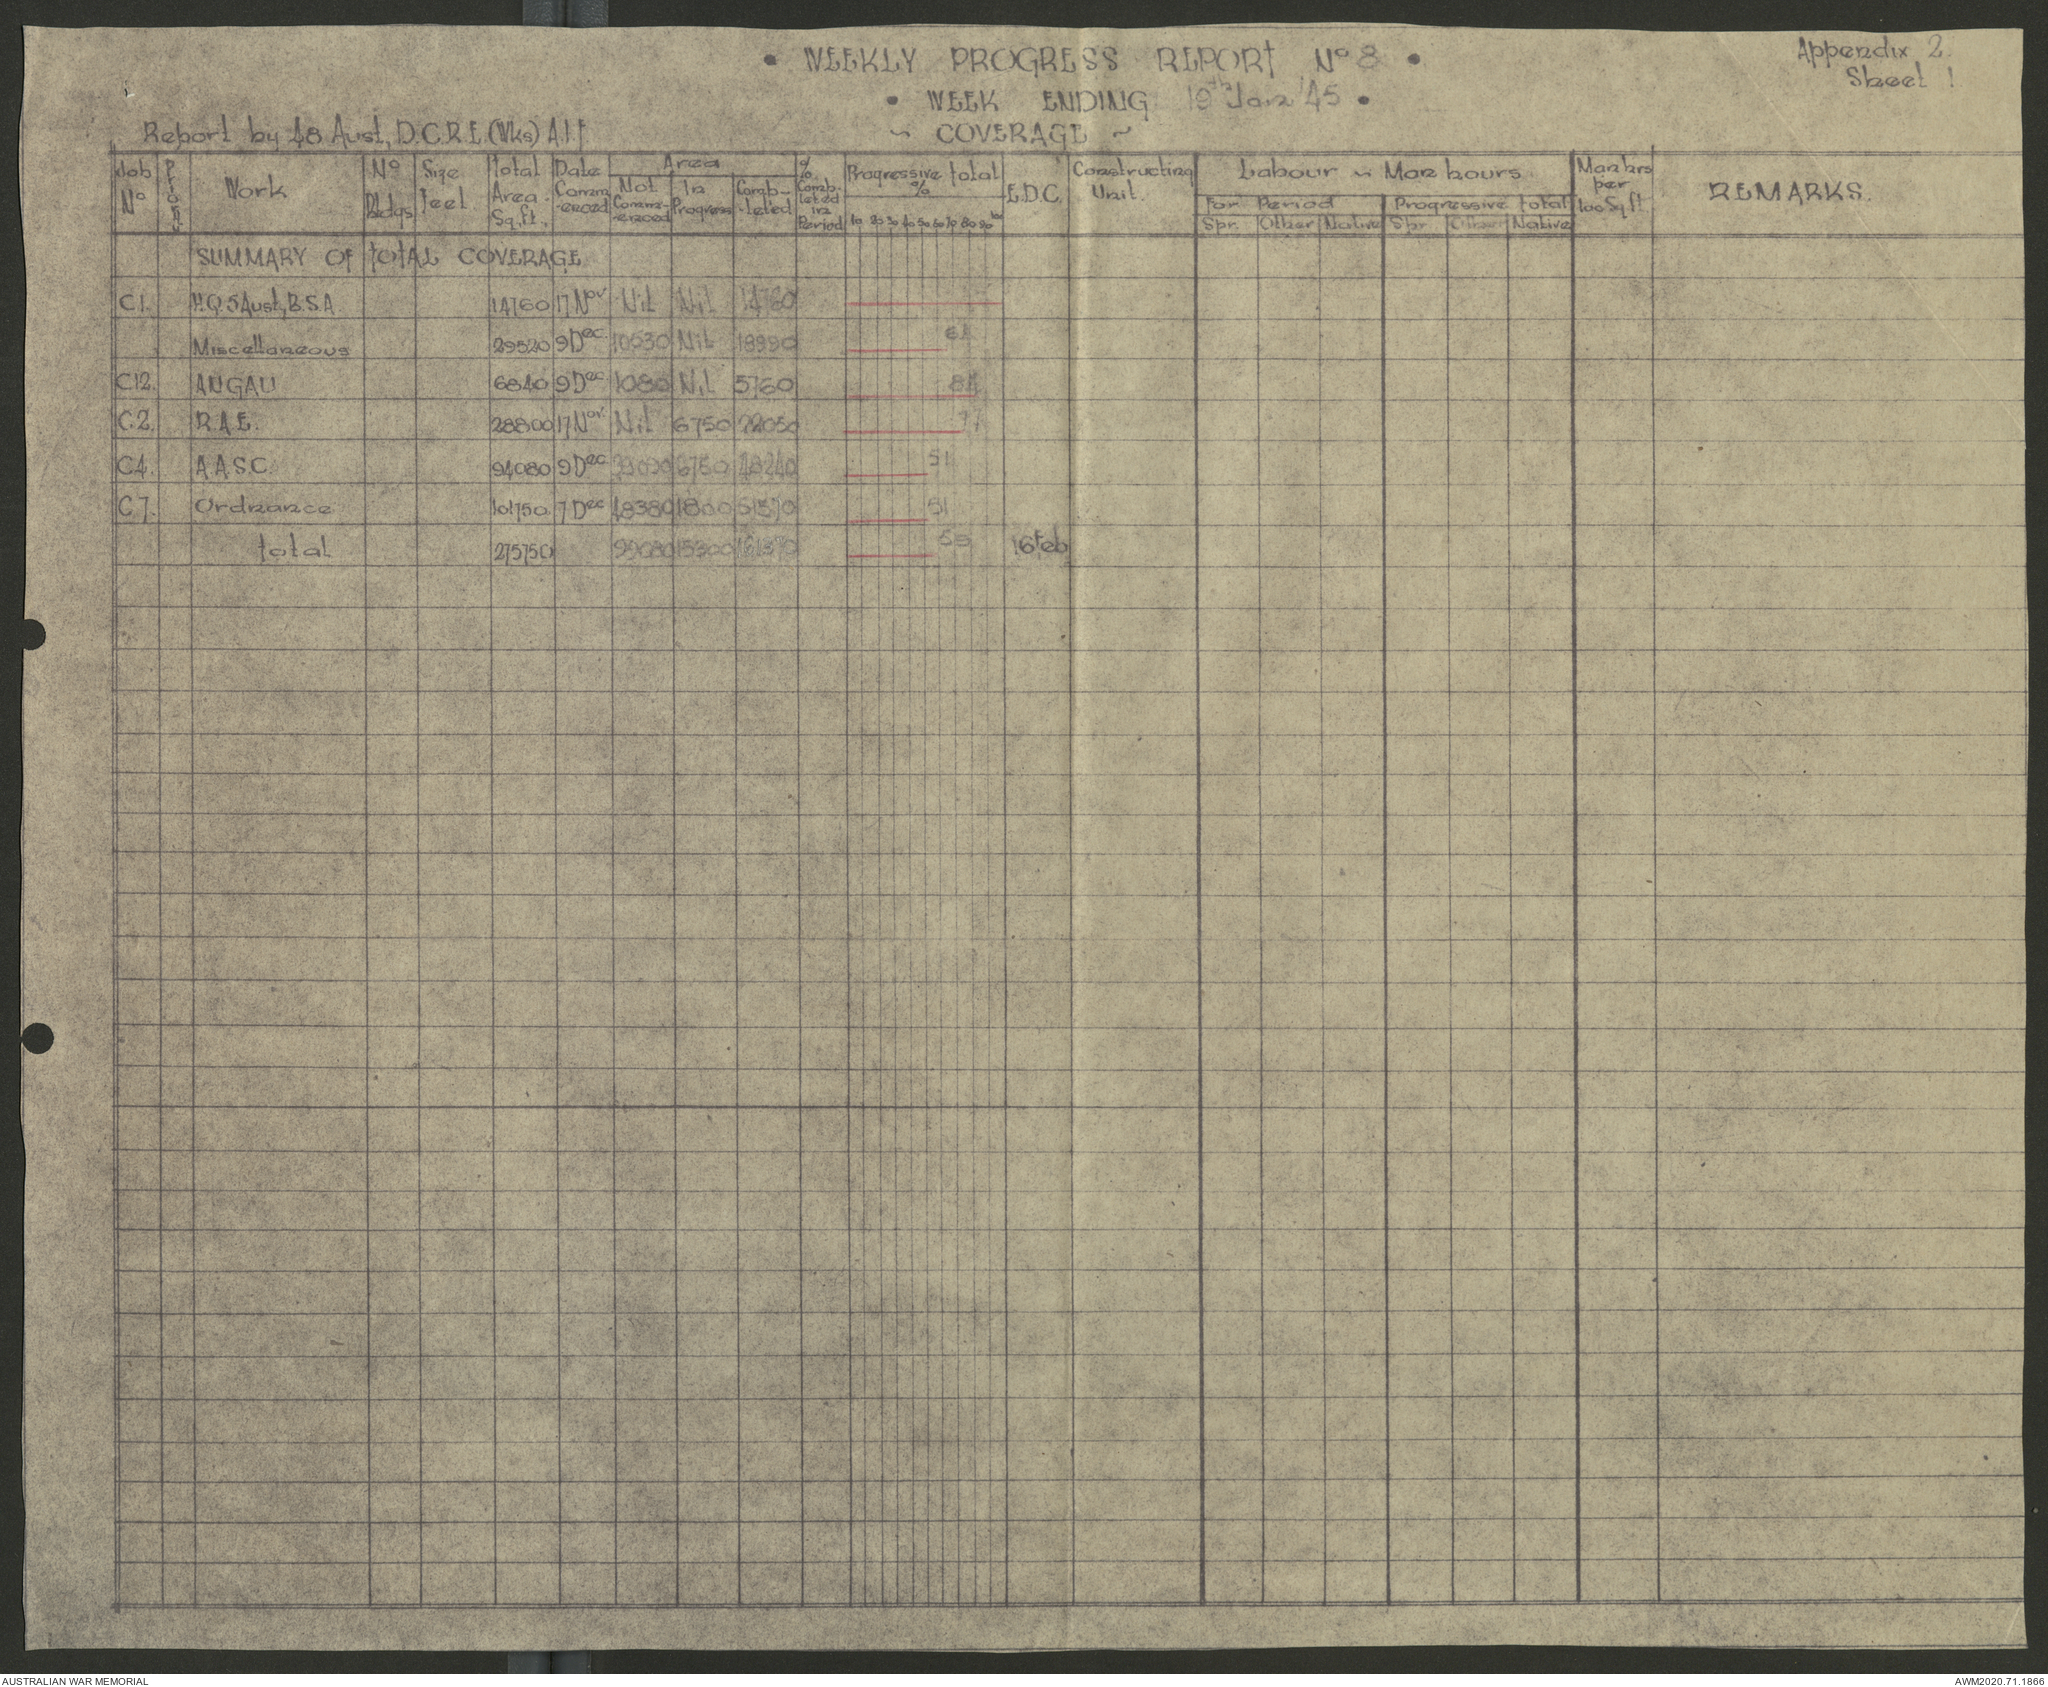 • WEEKLY PROGRESS REPORT Nº 8 •
Appendix 2.
Sheet 1
• WEEK ENDING 19th Jan '45 •
Report by 48 Aust, D.C.R.E. (Wks) A.I.F
~ COVERAGE ~
Job Nº Prior. Work Nº Bldgs Size feet Total Area Sq.ft. Date Comm-enced Area Not Comm-enced In Progress Comp-leted % Comp-leted in Period Progressive total % 10 20 30 40 50 60 70 80 90 100 E.D.C. Constructing Unit. Labour ~ Man hours For Period Spr. Other Native Progressive total Spr. Other Native Man hrs per 100 Sq ft. REMARKS.
SUMMARY OF TOTAL COVERAGE
C1. H.Q. 5 Aust, B.S.A. 14760 17 Nov. Nil Nil 14760
Miscellaneous 29520 9 Dec. 10530 Nil 18990 64
C12. ANGAU 6840 9 Dec 1080 Nil 5760 84
C2. R.A.E. 28800 17 Nov. Nil 6750 22050 77
C4. A.A.S.C. 94080 9 Dec. 6750 48240 51
C7. Ordnance 101750 7 Dec 48380 1800 51570 51
Total 275750 99080 15300 161370 58 16 Feb
AUSTRALIAN WAR MEMORIAL
AWM2020.71.1866